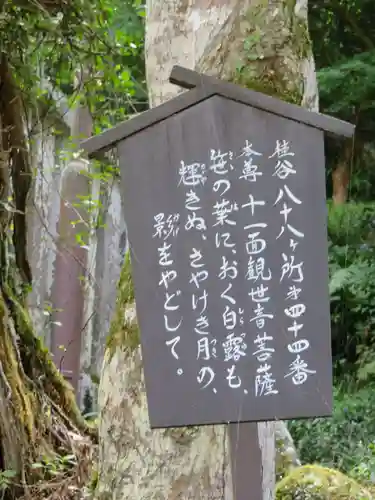 桂谷八十八ヶ所第四十四番
本尊 十一面観世音菩薩
笹の葉に、おく白露も、
輝きぬ、さやけき月の、
影をやどして。